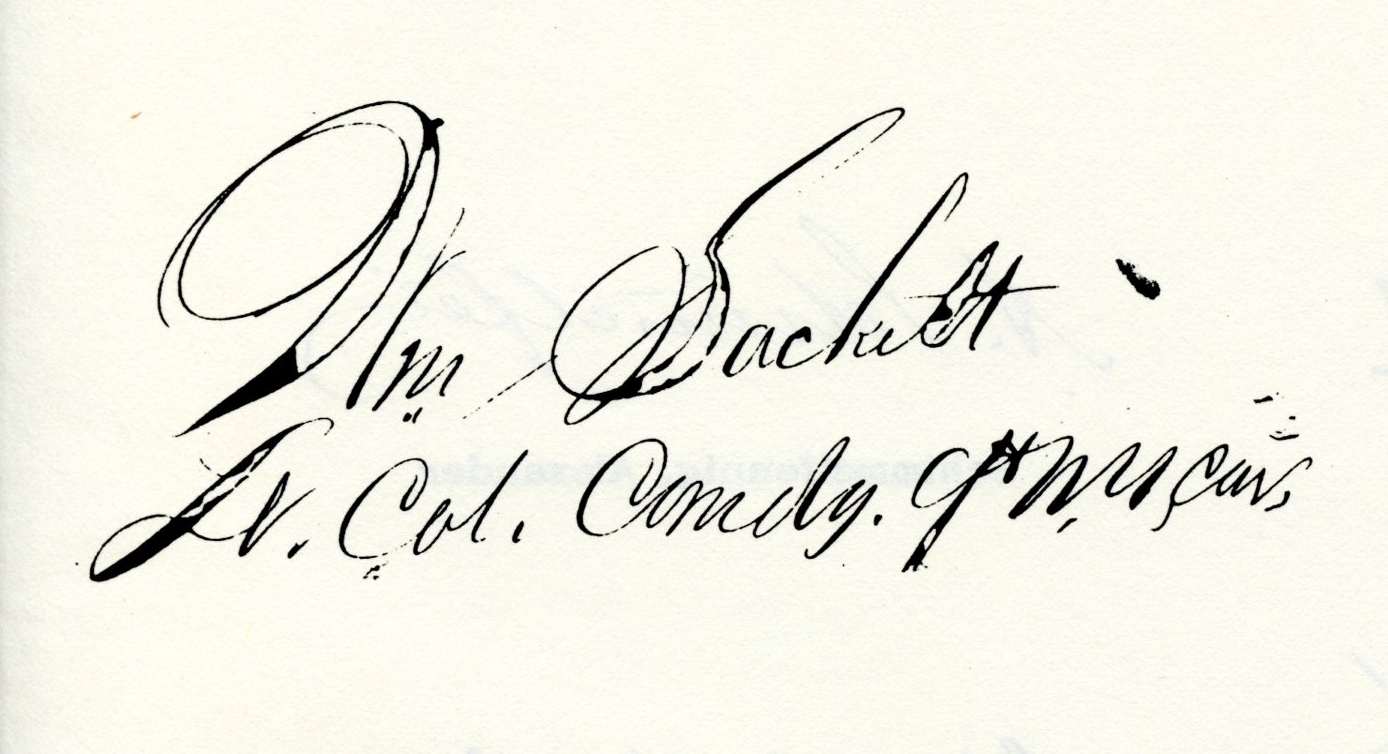 Wm Sackett
Lt. Col. Comdg. 9th N.Y. Cav.